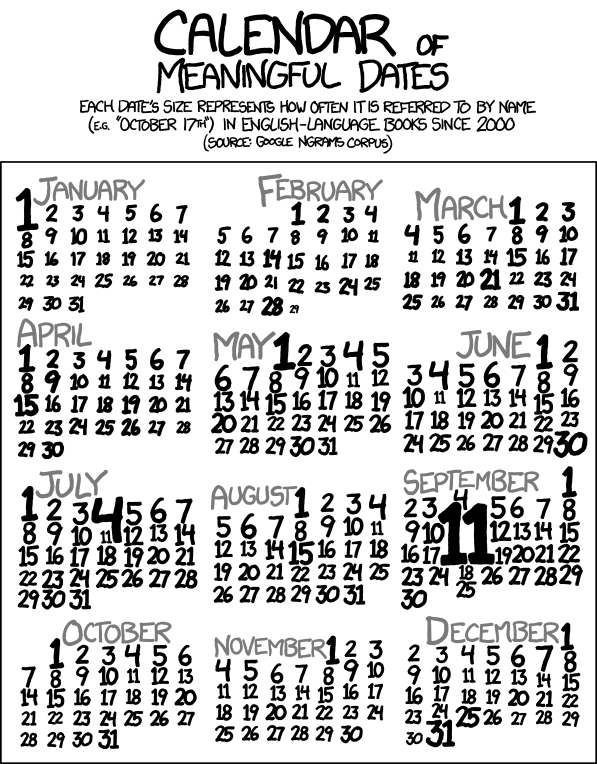 CALENDAR OF
MEANINGFUL DATES
EACH DATE'S SIZE REPRESENTS HOW OFTEN IT IS REFERRED TO BY NAME
(E.G. "OCTOBER 17TH") IN ENGLISH-LANGUAGE BOOKS SINCE 2000
(SOURCE: GOOGLE NGRAMS CORPUS)
JANUARY
1 2 3 4 5 6 7
8 9 10 11 12 13 14
15 16 17 18 19 20 21
22 23 24 25 26 27 28
29 30 31
FEBRUARY
1 2 3 4
5 6 7 8 9 10 11
12 13 14 15 16 17 18
19 20 21 22 23 24 25
26 27 28 29
MARCH 1 2 3
4 5 6 7 8 9 10
11 12 13 14 15 16 17
18 19 20 21 22 23 24
25 26 27 28 29 30 31
APRIL
1 2 3 4 5 6 7
8 9 10 11 12 13 14
15 16 17 18 19 20 21
22 23 24 25 26 27 28
29 30
MAY 1 2 3 4 5
6 7 8 9 10 11 12
13 14 15 16 17 18 19
20 21 22 23 24 25 26
27 28 29 30 31
JUNE 1 2
3 4 5 6 7 8 9
10 11 12 13 14 15 16
17 18 19 20 21 22 23
24 25 26 27 28 29 30
JULY
1 2 3 4 5 6 7
8 9 10 11 12 13 14
15 16 17 18 19 20 21
22 23 24 25 26 27 28
29 30 31
AUGUST 1 2 3 4
5 6 7 8 9 10 11
12 13 14 15 16 17 18
19 20 21 22 23 24 25
26 27 28 29 30 31
SEPTEMBER 1
2 3 4 5 6 7 8
9 10 11 12 13 14 15
16 17 18 19 20 21 22
23 24 25 26 27 28 29
30
OCTOBER
1 2 3 4 5 6
7 8 9 10 11 12 13
14 15 16 17 18 19 20
21 22 23 24 25 26 27
28 29 30 31
NOVEMBER 1 2 3
4 5 6 7 8 9 10
11 12 13 14 15 16 17
18 19 20 21 22 23 24
25 26 27 28 29 30
DECEMBER 1
2 3 4 5 6 7 8
9 10 11 12 13 14 15
16 17 18 19 20 21 22
23 24 25 26 27 28 29
30 31